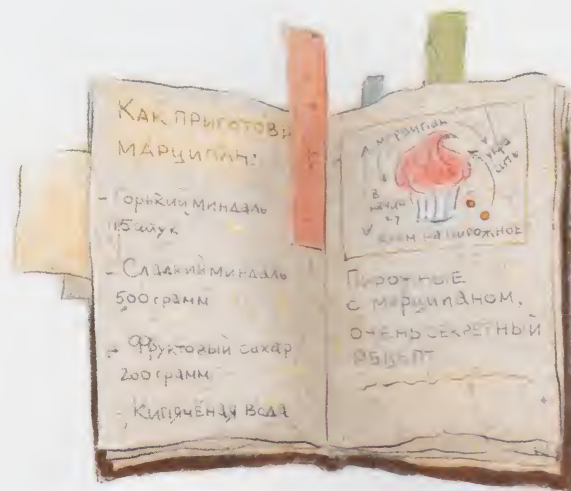 КАК ПРИГОТОВИ
МАРЦИПАН:
- ГОРЬКИЙ МИНДАЛЬ
15 штук
- СЛАДКИЙ МИНДАЛЬ
500 грамм
- ФРУКТОВЫЙ САХАР
200 грамм
- КИПЯЧЁНАЯ ВОДА
МАРЦИПАН
КРЕМ НА ПИРОЖНОЕ
ПИРОЖНЫЕ
С МАРЦИПАНОМ,
ОЧЕНЬ СЕКРЕТНЫЙ
РЕЦЕПТ